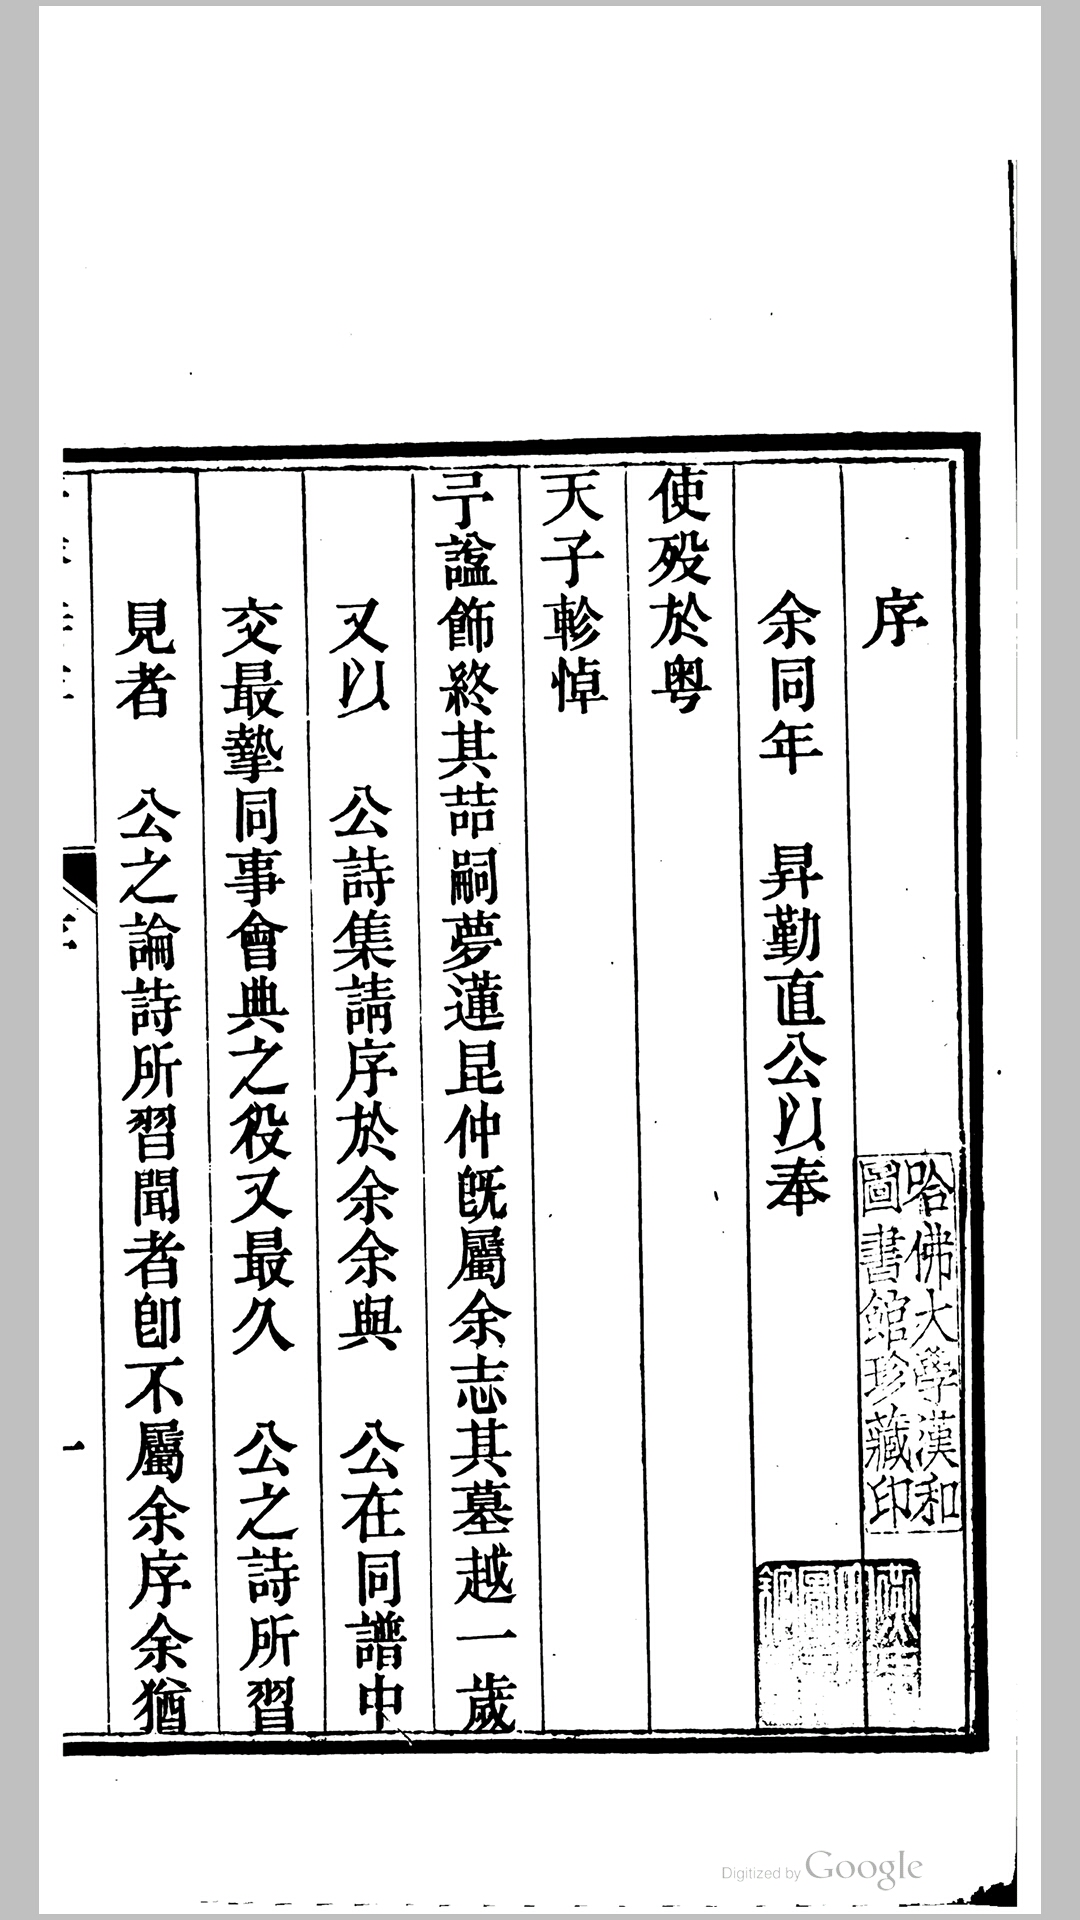 序
余同年　昇勤直公以奉
使歿於粵
天子軫悼
予諡飾終其喆嗣夢蓮昆仲既屬余志其墓越一歲
又以　公詩集請序於余余與　公在同譜中
交最摯同事會典之役又最久　公之詩所習
見者　公之論詩所習聞者卽不屬余序余猶
一
哈佛大學漢和
圖書館珍藏印
Digitized by Google